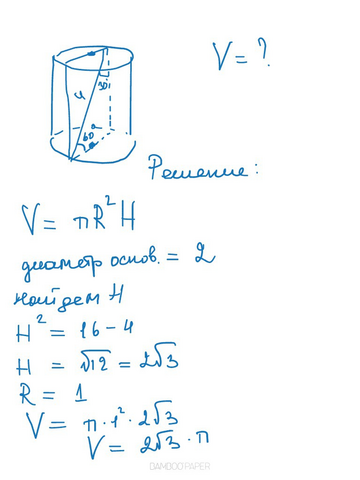 V = ?
4
30°
60°
Решение:
V = πR²H
диаметр основ. = 2
найдем H
H² = 16 - 4
H = √12 = 2√3
R = 1
V = π · 1² · 2√3
V = 2√3 · π
BAMBOO PAPER